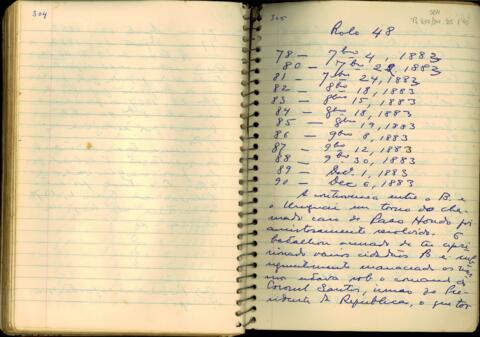 304
305
Rolo 48
78 — 7bro 4, 1883
80 — 7bro 22, 1883
81 — 7bro 24, 1883
82 — 8bro 18, 1883
83 — 8bro 15, 1883
84 — 8bro 18, 1883
85 — 8bro 19, 1883
86 — 9bro 8, 1883
87 — 9bro 12, 1883
88 — 9bro 30, 1883
89 — Dez. 1, 1883
90 — Dec 6, 1883
A controversia entre o B. e
o Uruguai em torno do cha-
mado caso de Paso Hondo foi
amistosamente resolvido. O
batalhão armado de
varios cidadãos B e sub
sequentemente os
sob o comando do
Coronel Santos, irmão do Pre-
sidente da Republica, o que